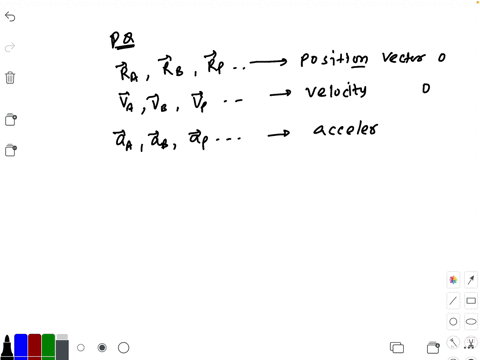 PQ
R⃗A, R⃗B, R⃗P .. ⟶ position vector 0
V⃗A, V⃗B, V⃗P .. → velocity 0
a⃗A, a⃗B, a⃗P ... → acceler